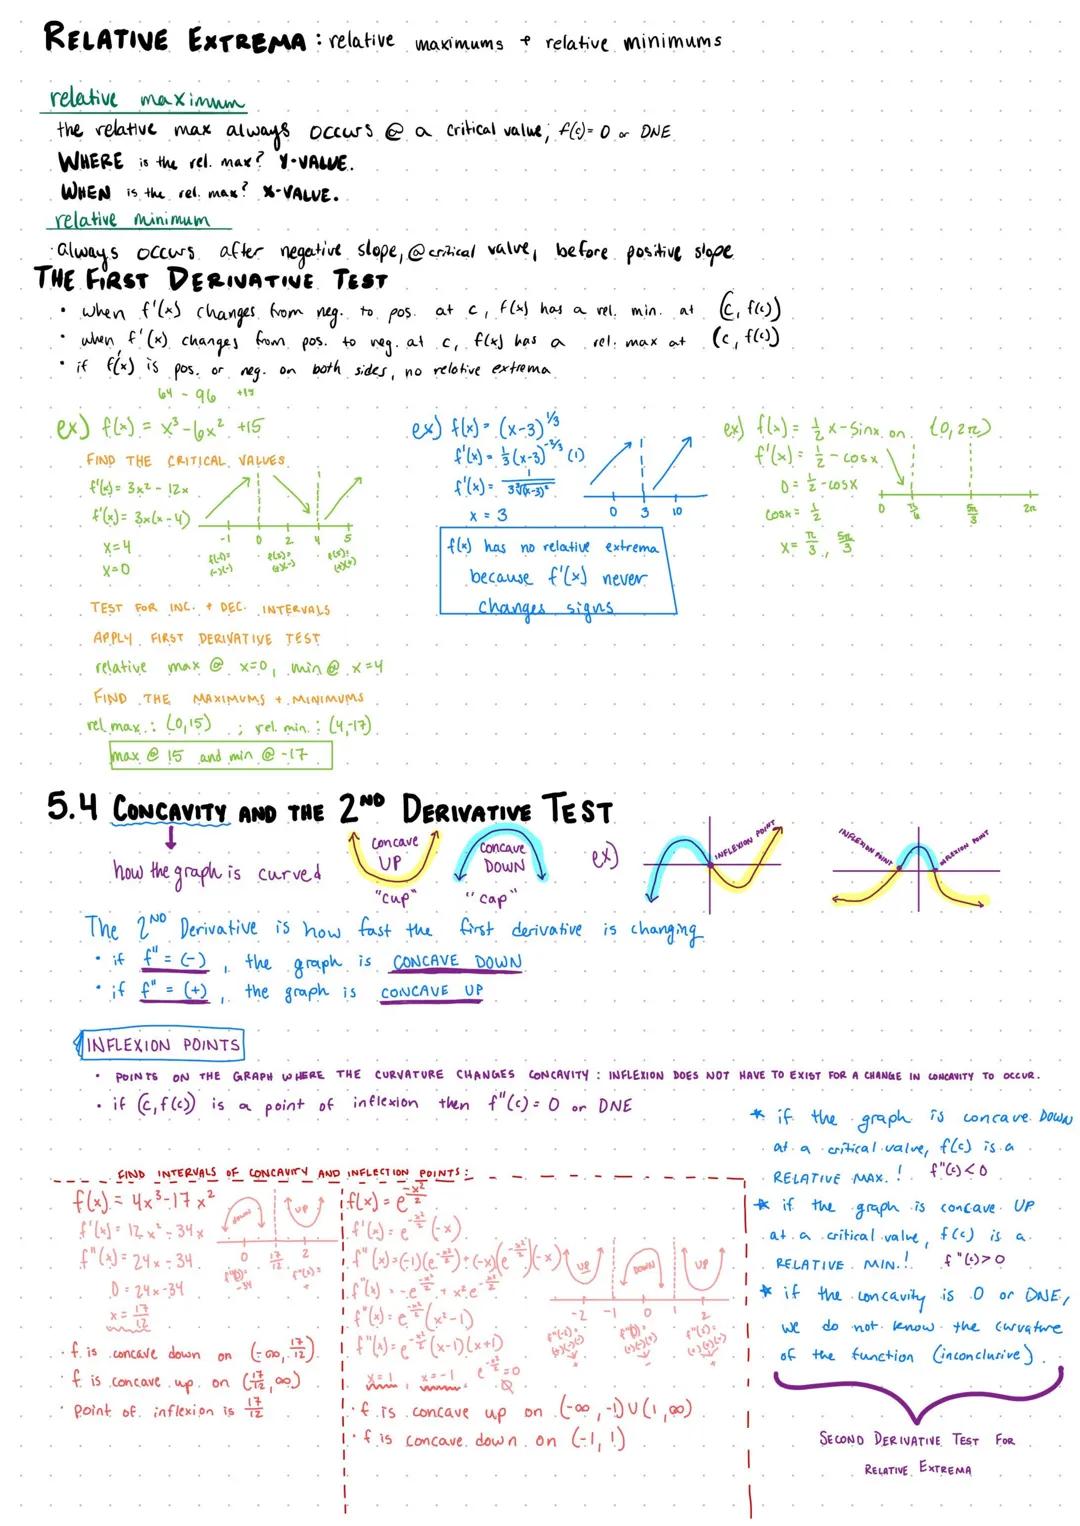 RELATIVE EXTREMA : relative maximums + relative minimums
relative maximum
the relative max always occurs @ a critical value, f(c)= 0 or DNE
WHERE is the rel. max? Y-VALUE.
WHEN is the rel. max? X-VALUE.
relative minimum
always occurs after negative slope, @ critical value, before positive slope
THE FIRST DERIVATIVE TEST
• when f'(x) changes from neg. to pos. at c, f(x) has a rel. min. at (c, f(c))
• when f'(x) changes from pos. to neg. at c, f(x) has a rel. max at (c, f(c))
• if f'(x) is pos. or neg. on both sides, no relative extrema
64 - 96 +15
ex) f(x) = x³-6x² +15
FIND THE CRITICAL VALUES
f'(x)= 3x² - 12x
f'(x)= 3x(x-4)
x=4
x=0
-1 0 2 4 5
f(-1)= f(2)= f(5)=
(-)(-) (+)(-) (+)(+)
TEST FOR INC. + DEC. INTERVALS
APPLY FIRST DERIVATIVE TEST
relative max @ x=0, min @ x=4
FIND THE MAXIMUMS + MINIMUMS
rel. max.: (0,15) ; rel. min.: (4,-17)
max @ 15 and min @ -17
ex) f(x)= (x-3)^1/3
f'(x)= 1/3(x-3)^-2/3 (1)
f'(x)= 1/3∛(x-3)²
x = 3
0 3 10
f(x) has no relative extrema
because f'(x) never
changes signs
ex) f(x)= 1/2 x-sinx on (0,2π)
f'(x)= 1/2 - cosx
0= 1/2 -cosx
cosx= 1/2
x= π/3, 5π/3
0 5π/3 2π
5.4 CONCAVITY AND THE 2ND DERIVATIVE TEST
how the graph is curved
concave UP
"cup"
concave DOWN
"cap"
ex)
INFLEXION POINT
INFLEXION POINT
INFLEXION POINT
The 2ND Derivative is how fast the first derivative is changing
• if f" = (-), the graph is CONCAVE DOWN
• if f" = (+), the graph is CONCAVE UP
INFLEXION POINTS
• POINTS ON THE GRAPH WHERE THE CURVATURE CHANGES CONCAVITY : INFLEXION DOES NOT HAVE TO EXIST FOR A CHANGE IN CONCAVITY TO OCCUR.
• if (c, f(c)) is a point of inflexion then f"(c)= 0 or DNE
FIND INTERVALS OF CONCAVITY AND INFLECTION POINTS:
f(x)= 4x³-17x²
f'(x)= 12x² - 34x
f"(x)= 24x - 34
0= 24x-34
x= 17/12
DOWN UP
0 17/12 2
f"(0)= f"(2)=
-34 +
• f is concave down on (-∞, 17/12)
• f is concave up on (17/12, ∞)
• point of inflexion is 17/12
f(x)= e^-x²/2
f'(x)= e^-x²/2 (-x)
f"(x)=(-1)(e^-x²/2)+(-x)(e^-x²/2)(-x)
f"(x)= -e^-x²/2 + x²e^-x²/2
f"(x)= e^-x²/2 (x²-1)
f"(x)= e^-x²/2 (x-1)(x+1)
x=1, x=-1, e^-x²/2=0
Ø
UP DOWN UP
-2 -1 0 1 2
f"(-2)= f"(0)= f"(2)=
(+)(-)(-) (+)(-)(+) (+)(+)(+)
+ - +
• f is concave up on (-∞,-1)∪(1,∞)
• f is concave down on (-1,1)
* if the graph is concave DOWN
at a critical value, f(c) is a
RELATIVE MAX.! f"(c)<0
* if the graph is concave UP
at a critical value, f(c) is a
RELATIVE MIN.! f"(c)>0
* if the concavity is 0 or DNE,
we do not know the curvature
of the function (inconclusive).
SECOND DERIVATIVE TEST FOR
RELATIVE EXTREMA